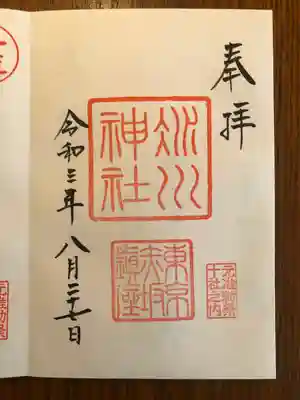 奉拝
氷川
神社
東京
赤坂
鎮座
元准勅祭
十社之内
令和三年八月二十七日